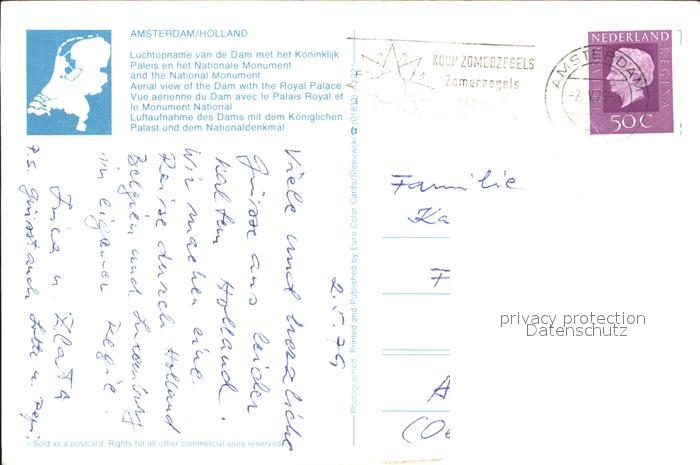 AMSTERDAM/HOLLAND
Luchtopname van de Dam met het Koninklijk
Paleis en het Nationale Monument
and the National Monument
Aerial view of the Dam with the Royal Palace
Vue aérienne du Dam avec le Palais Royal et
le Monument National
Luftaufnahme des Dams mit dem Königlichen
Palast und dem Nationaldenkmal
KOOP ZOMERZEGELS
Zomerzegels
AMSTERDAM
NEDERLAND
JULIANA REGINA
50 C
2.5.79
Viele und herzliche
Grüsse aus leider
kaltem Holland.
Wir machen eine
Reise durch Holland
Belgien und Luxemburg
in eigener Regie.
u.
P.S. Grüsst auch u.
Photographed, Printed and Published by Euro Color Cards/Sleeuwijk
Familie
Ka
F
A
(Oe
privacy protection
Datenschutz
Sold as a postcard. Rights for all other commercial uses reserved